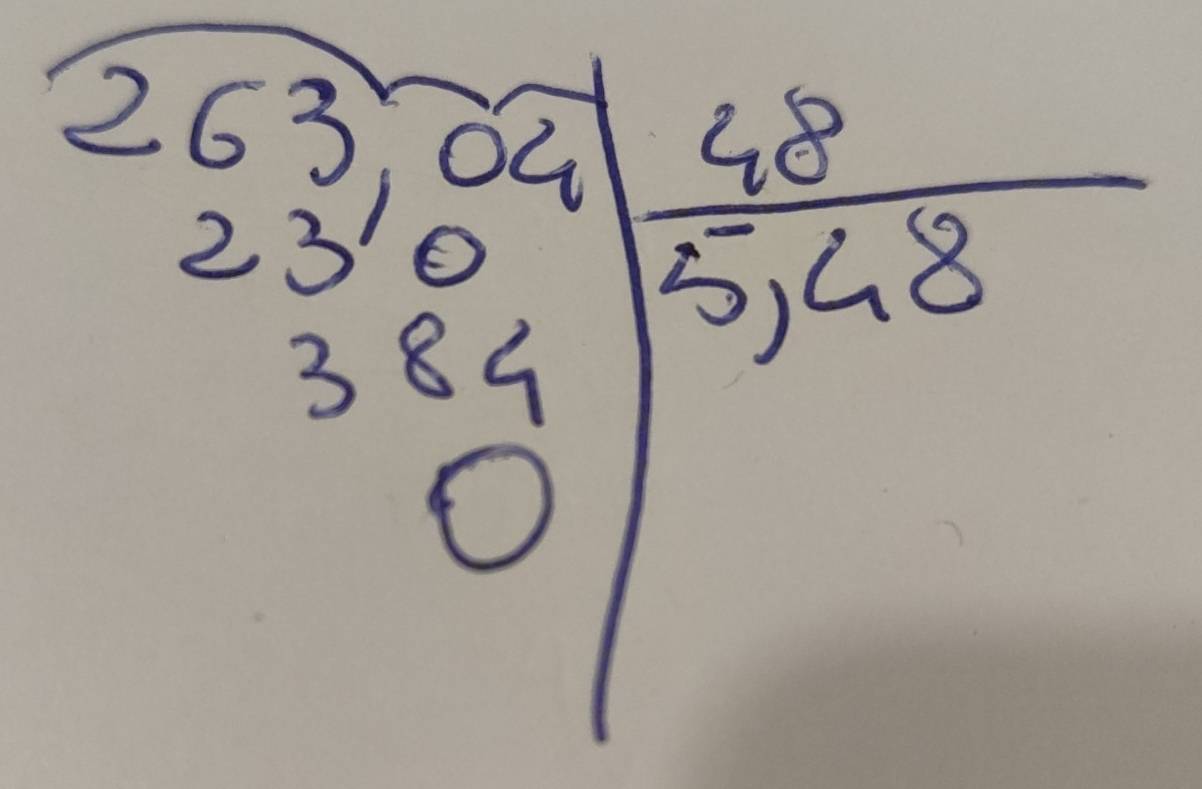 263,04 48
23'0 5,48
384
0